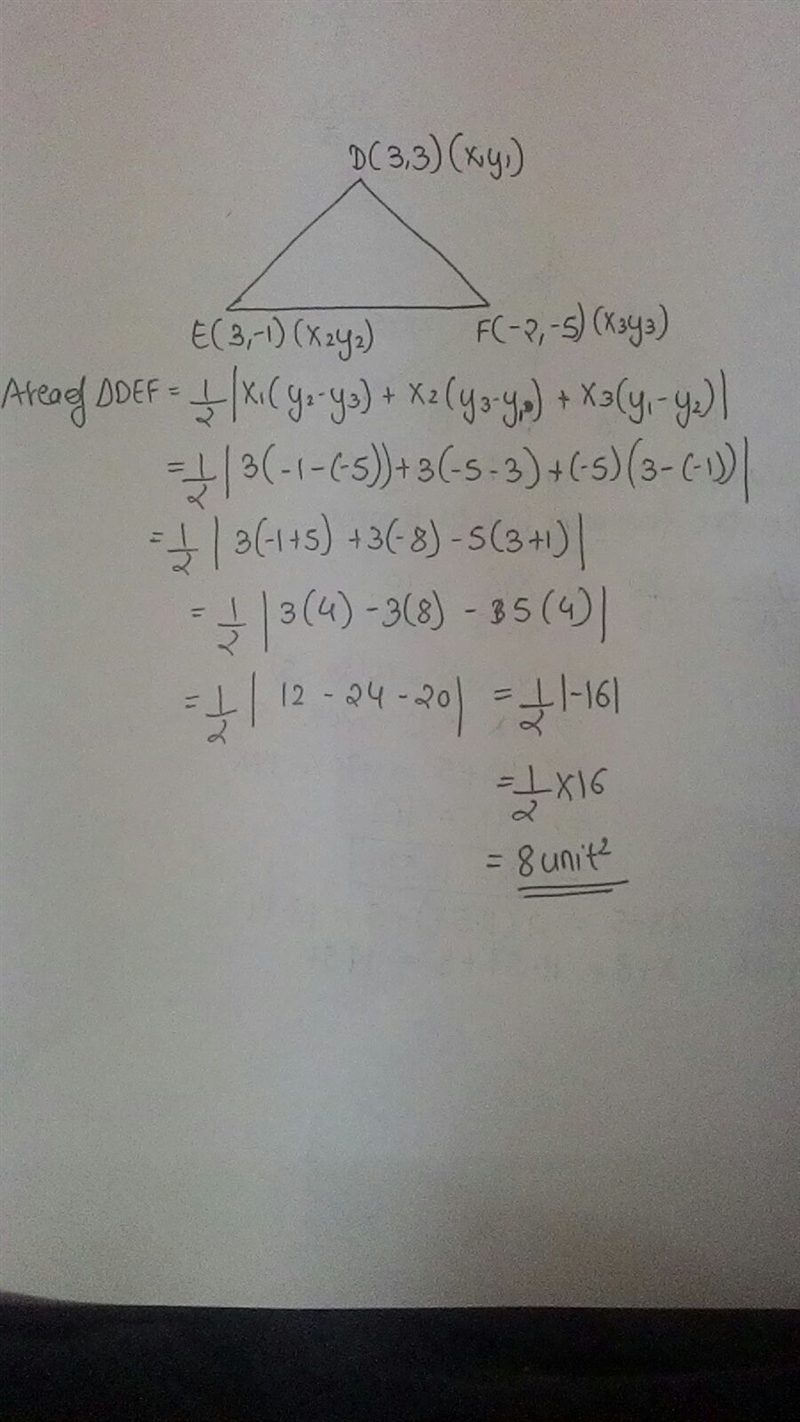 D(3,3)(x₁y₁)
E(3,-1)(x₂y₂) F(-2,-5)(x₃y₃)
Area of ΔDEF = 1/2 |x₁(y₂-y₃) + x₂(y₃-y₁) + x₃(y₁-y₂)|
= 1/2 | 3(-1-(-5))+3(-5-3)+(-5)(3-(-1))|
= 1/2 | 3(-1+5) +3(-8) -5(3+1)|
= 1/2 | 3(4) -3(8) - 5(4)|
= 1/2 | 12 - 24 - 20| = 1/2 |-16|
= 1/2 x16
= 8unit²